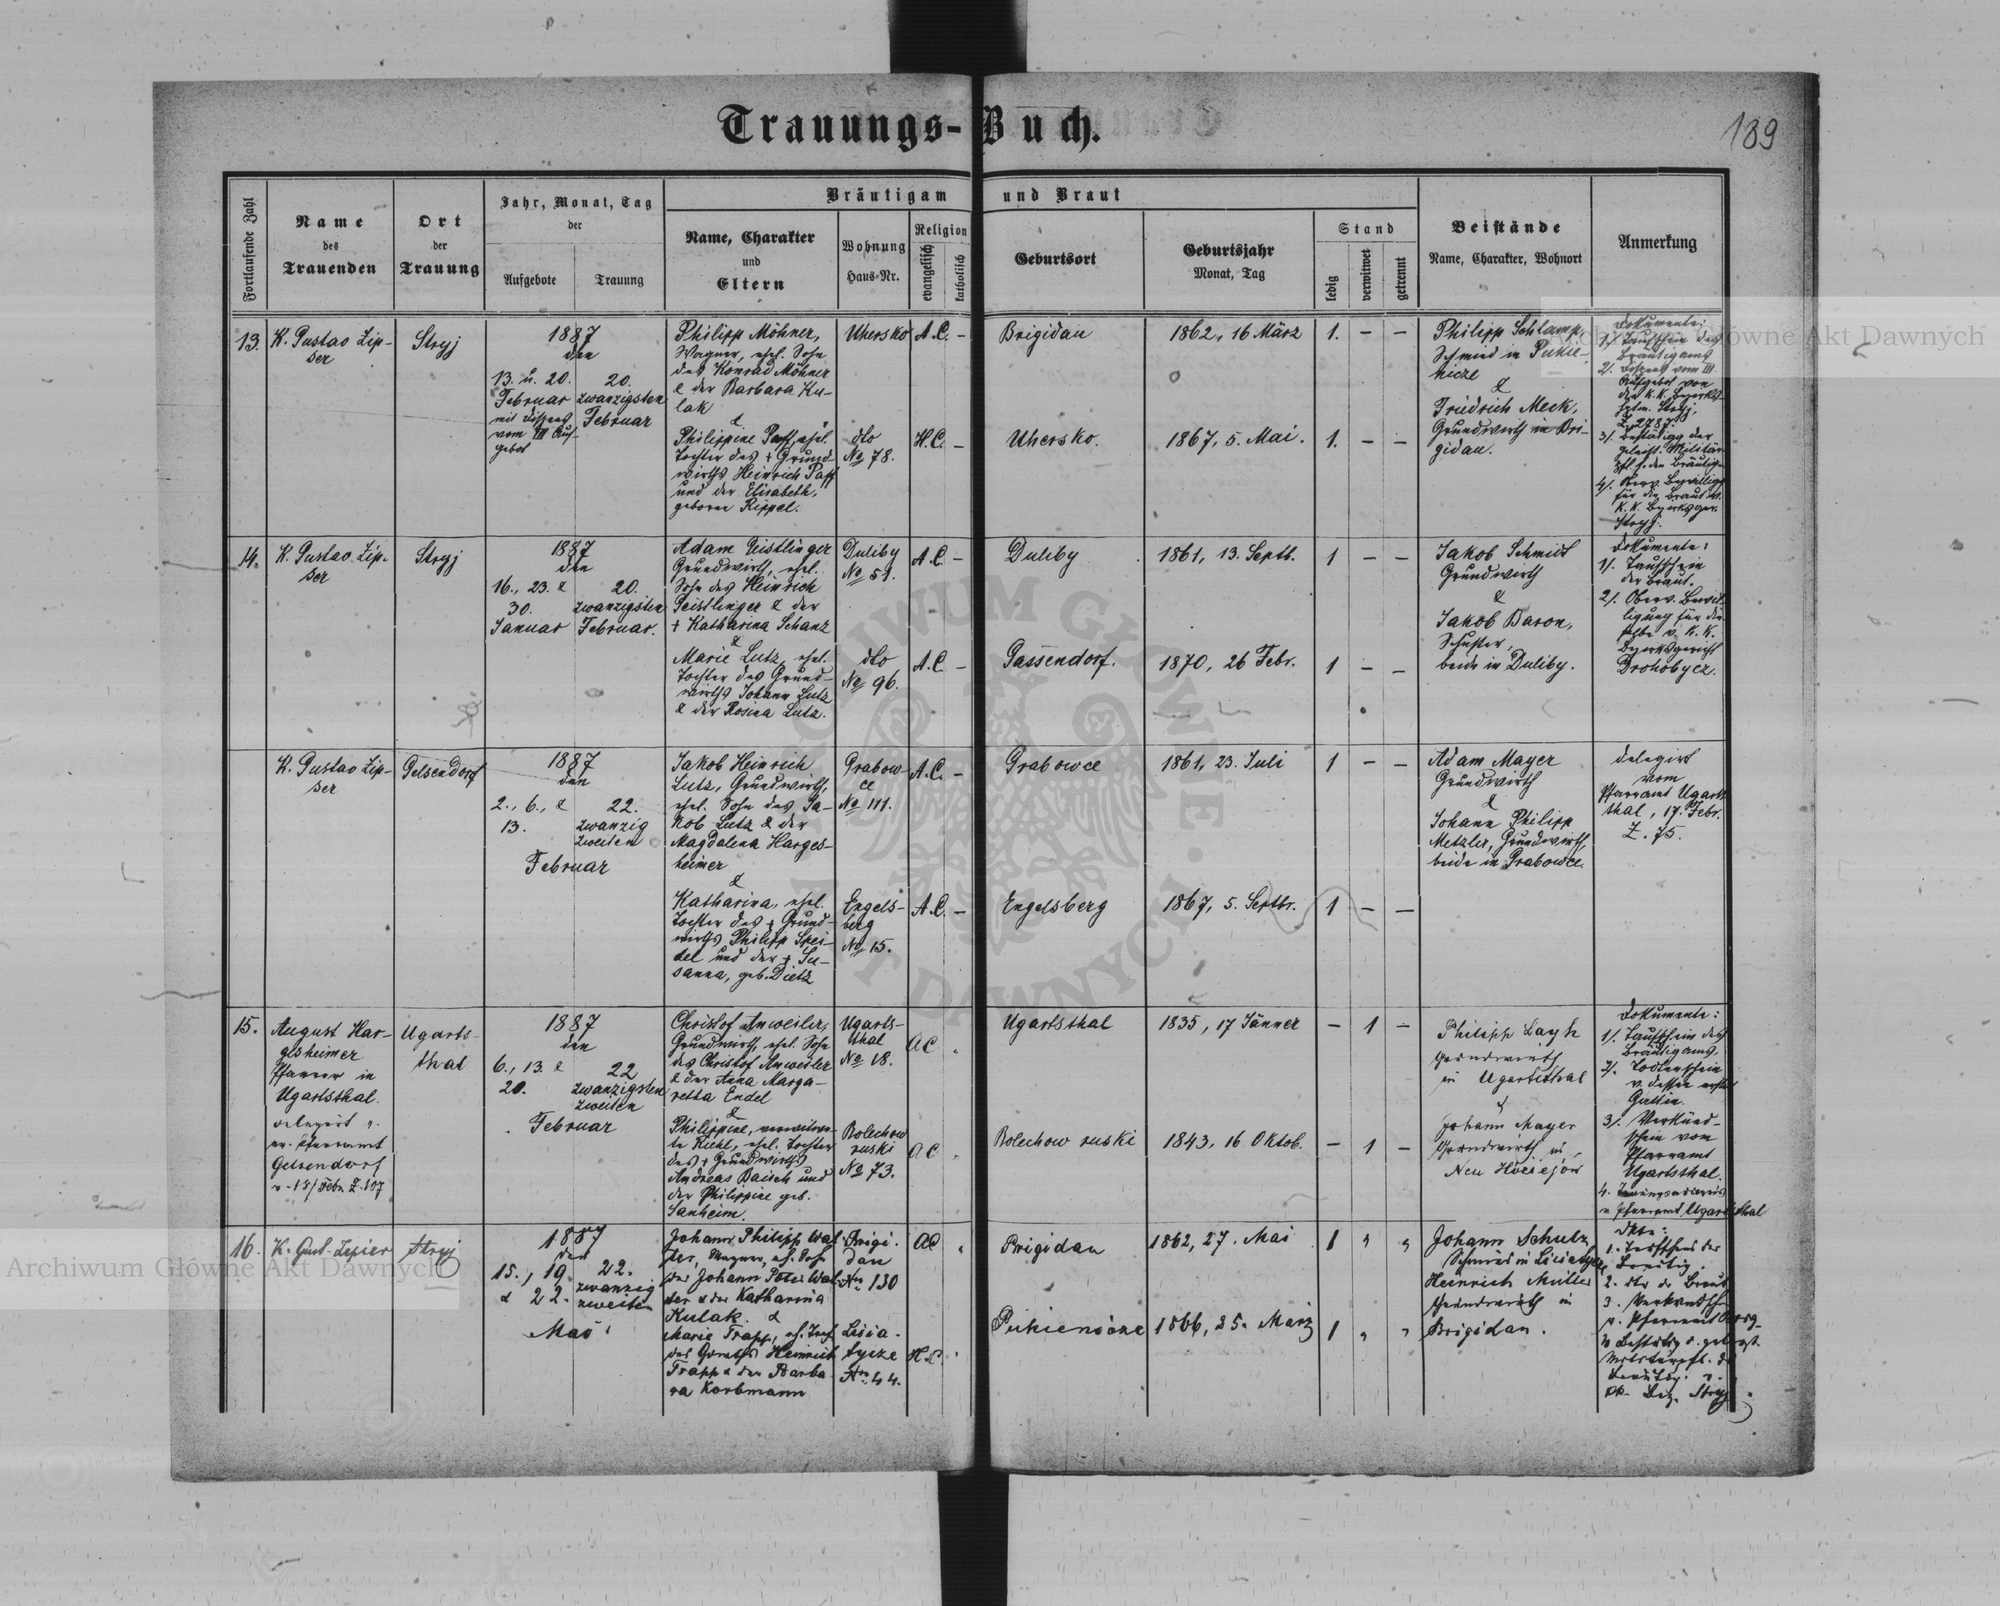 Trauungs-Buch.
189
Fortlaufende Zahl
Name
des
Trauenden
Ort
der
Trauung
Jahr, Monat, Tag
der
Aufgebote
Trauung
Bräutigam und Braut
Name, Charakter
und
Eltern
Wohnung
Haus-Nr.
Religion
evangelisch
katholisch
Geburtsort
Geburtsjahr
Monat, Tag
Stand
ledig
verwitwet
getrennt
Beistände
Name, Charakter, Wohnort
Anmerkung
13.
K. Gustav Lip-
ser
Stryj
1887
den
13. u. 20.
Februar
mit Dispens
vom III Auf-
gebot
20.
zwanzigsten
Februar
Philipp Möhner,
Wagner, ehel. Sohn
des Konrad Möhner
& der Barbara Ku-
lak
&
Philippine Paff, ehel.
Tochter des + Grund-
wirths Heinrich Paff
und der Elisabeth,
geborne Rippel.
Uhersko
A.C. –
dto
No 78.
H.C. –
Brigidau
1862, 16 März
1. – –
Uhersko.
1867, 5. Mai.
1. – –
Philipp Schlamp,
Schmied in Pukie-
nicze
&
Friedrich Meck,
Grundwirth in Bri-
gidau.
Dokumente:
1/. Taufschein des
Bräutigams
2/. Dispens vom III.
Aufgebot von
der K. K. Bezirks
hptm. Stryj,
Z. 2787.
3/. Bestätigg der
geleist. Militär
pfl. f. den Bräutig.
4/. Oberv. Bewilligg
für die Braut v.
K. K. Bezirksger.
Stryj.
14.
K. Gustav Lip-
ser
Stryj
1887
den
16., 23. &
30.
Januar
20.
zwanzigsten
Februar.
Adam Geistlinger
Grundwirth, ehel.
Sohn des Heinrich
Geistlinger & der
+ Katharina Schanz
&
Marie Lutz, ehel.
Tochter des Grund-
wirths Johann Lutz
& der Rosina Lutz.
Duliby
No 51.
A.C. –
dto
No 96.
A.C. –
Duliby
1861, 13. Septb.
1 – –
Gassendorf.
1870, 26 Febr.
1 – –
Jakob Schmidt
Grundwirth
&
Jakob Baron,
Schuster,
beide in Duliby.
Dokumente:
1/. Taufschein
der Braut.
2/. Oberv. Bewil-
ligung für die-
selbe v. K. K.
Bezirksgericht
Drohobycz.
K. Gustav Lip-
ser
Gelsendorf
1887
den
2., 6., &
13.
22.
zwanzig
zweiten
Februar
Jakob Heinrich
Lutz, Grundwirth,
ehel. Sohn des Ja-
kob Lutz & der
Magdalena Harges-
heimer
&
Katharina, ehel.
Tochter des + Grund-
wirths Philipp Skei-
del und der + Su-
sanna, geb. Dietz
Grabow-
ce
No 111.
A.C. –
Engels-
berg
No 15.
A.C. –
Grabowce
1861, 23. Juli
1 – –
Engelsberg
1867, 5. Septbr.
1 – –
Adam Mayer
Grundwirth
&
Johann Philipp
Metzler, Grundwirth,
beide in Grabowce.
delegirt
vom
Pfarramt Ugarts
thal, 17. Febr.
Z. 75.
15.
August Har-
gesheimer
Pfarrer in
Ugartsthal.
delegirt v.
ev. Pfarramt
Gelsendorf
v. 15/Febr. Z. 107
Ugarts-
thal
1887
den
6., 13. &
20.
22
zwanzigsten
zweiten
Februar
Christof Anweiler,
Grundwirth, ehel. Sohn
des Christof Anweiler
& der Anna Marga-
retta Endel
&
Philippine, verwitwe-
te Kiehl, ehel. Tochter
des + Grundwirths
Andreas Baisch und
der Philippine geb.
Sanheim.
Ugarts-
thal
No 18.
AC
Bolechow
ruski
No 73.
AC
Ugartsthal
1835, 17 Jänner
– 1 –
Bolechow ruski
1843, 16 Oktob.
– 1 –
Philipp Layh
Grundwirth
in Ugartsthal
&
Johann Mayer
Grundwirth in
Neu
Dokumente:
1/. Taufschein des
Bräutigams.
2/. Todtenschein
v. dessen erster
Gattin.
3/. Verkünd-
schein vom
Pfarramt
Ugartsthal.
4. Trauungsausweis
v Pfarramt Ugartsthal
16.
K. Gust. Lipser
Stryj
1887
den
15., 19
& 22.
22.
zwanzig
zweiten
Mai
Johann Philipp Wal-
ter, Wagner, eh. Sohn
des Johann Peter Wal-
ter & der Katharina
Kulak. &
Marie Trapp, eh. Tocht
des Grundw Heinrich
Trapp & der Barba
ra Korbmann
Brigi-
dau
No 130
AC
Lisia-
tycze
No 44.
H.C.
Brigidau
1862, 27. Mai
1 " "
Pukienicze
1866, 25. März
1 " "
Johann Schutz
Schmied in Lisiatycze
Heinrich Müller
Grundwirth in
Brigidau.
Dkte:
1. Taufschns der
Bräutig.
2. dto d. Braut
3. Verkündsch.
Stryj
Archiwum Główne Akt Dawnych
Archiwum Główne Akt Dawnych
ARCHIWUM GŁÓWNE • AKT DAWNYCH •